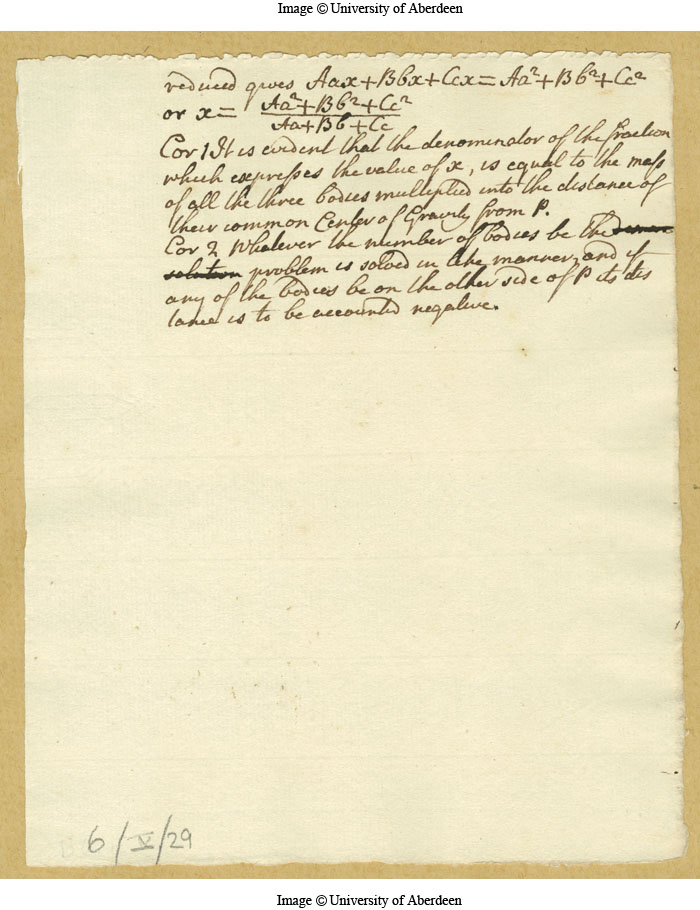 Image © University of Aberdeen
reduced gives Aax + Bbx + Ccx = Aa² + Bb² + Cc²
or x = Aa² + Bb² + Cc² / Aa + Bb + Cc
Cor 1 It is evident that the denominator of the fraction
which expresses the value of x, is equal to the mass
of all the three bodies multiplied into the distance of
their common Center of Gravity from P.
Cor 2 Whatever the number of bodies be the
solution problem is solved in like manner, and if
any of the bodies be on the other side of P its dis
tance is to be accounted negative.
6/V/29
Image © University of Aberdeen